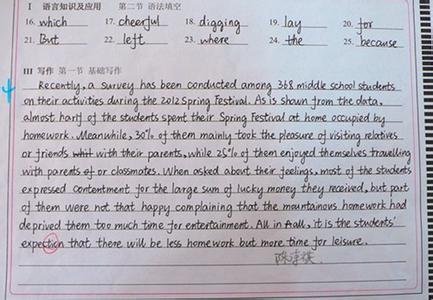 I 语言知识及应用 第二节 语法填空
16. which 17. cheerful 18. digging 19. lay 20. for
21. But 22. left 23. where 24. the 25. because
III 写作 第一节 基础写作
Recently, a survey has been conducted among 368 middle school students
on their activities during the 2012 Spring Festival. As is shown from the data,
almost harf of the students spent their Spring Festival at home occupied by
homework. Meanwhile, 30% of them mainly took the pleasure of visiting relatives
or friends whit with their parents, while 25% of them enjoyed themselves travelling
with parents of or classmates. When asked about their feelings, most of the students
expressed contentment for the large sum of lucky money they received, but part
of them were not that happy complaining that the mountainous homework had
deprived them too much time for entertainment. All in Aall, it is the students'
expection that there will be less homework but more time for leisure.